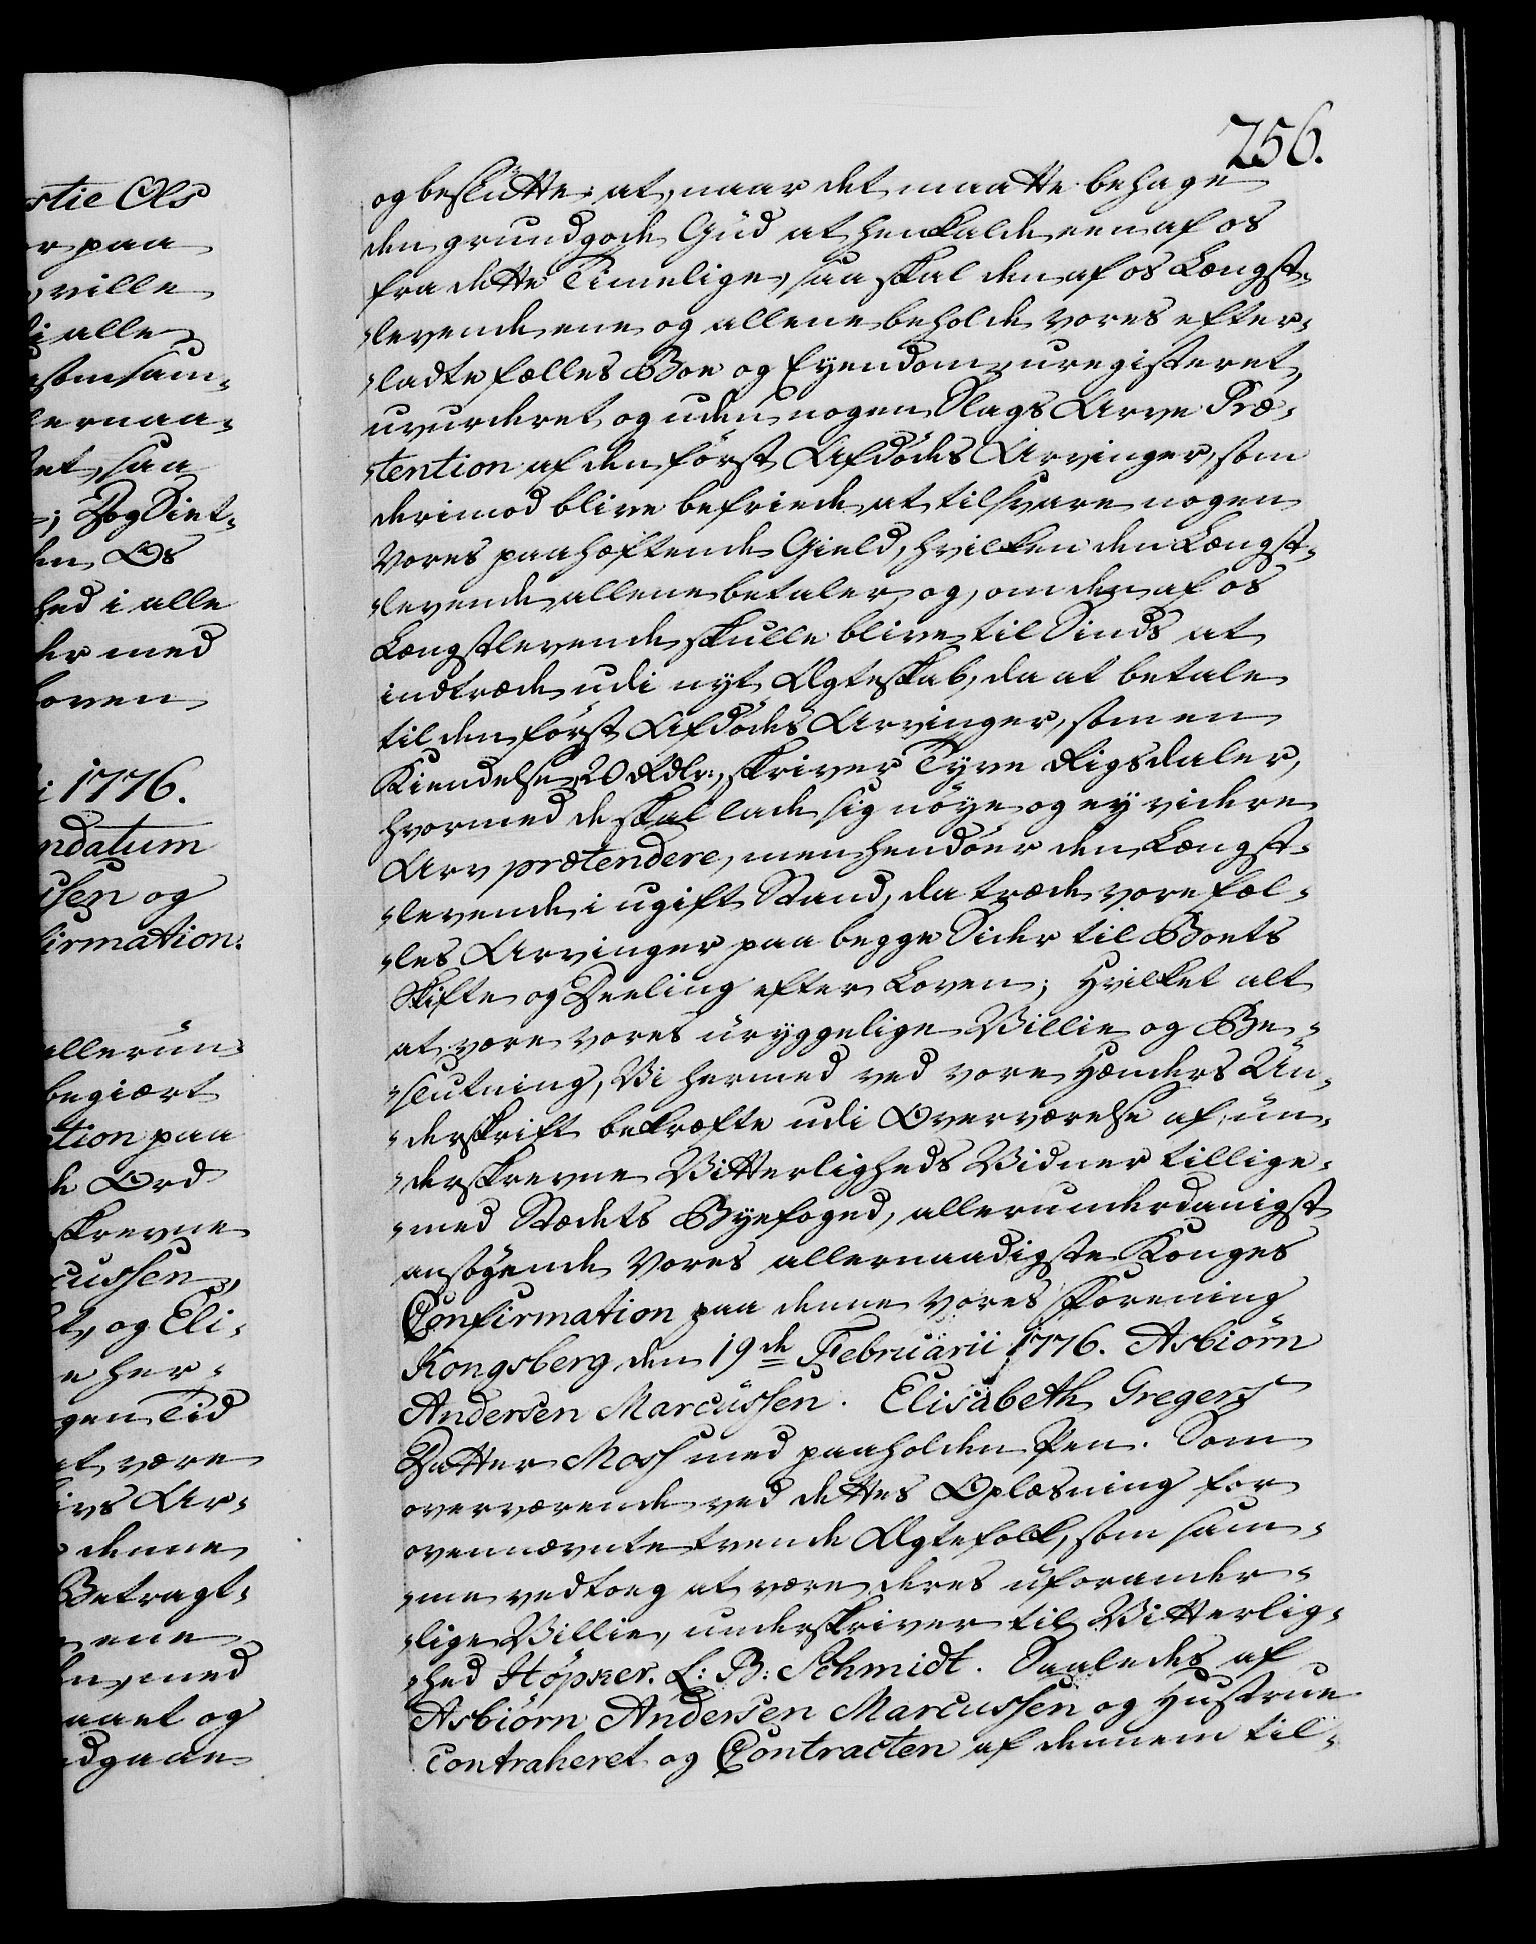 256.
stie Ols
r paa
ville
i alle
somsam-
lernaa-
et, saa
; Dog Siet-
en Os
hed i alle
der med
Loven
i 1776.
ndatum
ssen og
firmation.
allerun-
begiært
tion paa
de Ord
skrevne
cussen,
t, og Eli-
e her-
gen Tid
at være
ivs Ar-
denne
Betragt-
ene
n, med
aaet og
dgaae
og beslutte: at, naar det maatte behage
den grundgode Gud at henkalde een af os
fra dette Timelige, saa skal den af os Længst-
„levende ene og allene beholde vores efter-
„ladte fælles Boe og Eyendom, uregisteret,
uvurderet og uden nogen Slags Arve Præ-
„tention af den först Afdödes Arvinger, som
derimod blive befriede at tilsvare nogen
vores paahæftende Gield, hvilken den Længst-
„levende allene betaler, og, om den af os
Længstlevende skulle blive til Sinds at
indtræde udi nyt Ægteskab, da at betale
til den först Afdödes Arvinger, som en
Kiendelse 20 Rdlr:, skriver Tyve Rigsdaler,
hvormed de skal lade sig nöye og ey videre
Arv prætendere, men hendöer den Længst-
„levende i ugift Stand, da træde vore fæl-
„les Arvinger paa begge Sider til Boets
Skifte og Deeling efter Loven; hvilket alt
at være vores uryggelige Villie og Be-
„slutning, Vi hermed ved vore Hænders Un-
„derskrift bekræfte udi Overværelse af un-
„derskrevne Vitterligheds Vidner tillige-
„med Stædets Byefoged, allerunderdanigst
ansögende vores allernaadigste Konges
Confirmation paa denne vores Forening
Kongsberg den 19de Februarii 1776. Asbiörn
Andersen Marcussen. Elisabeth Gregers
Datter Moss med paaholden Pen. Som
overværende ved dettes Oplæsning for
ovennævnte tvende Ægtefolk, som sam-
„me vedtoeg at være deres uforander-
„lige Villie, underskriver til Vitterlig-
„hed Höpner. L: B: Schmidt. Saaledes af
Asbiörn Andersen Marcussen og Hustrue
contraheret og Contracten af dennem til-